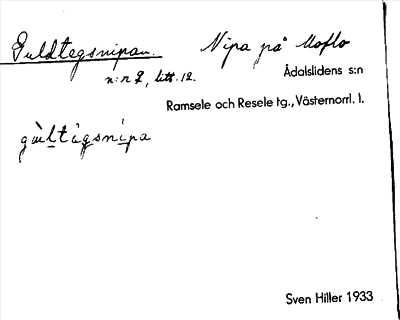 Guldtegsnipan. Nipa på Moflo
n:r 2, litt. 12. Ådalslidens s:n
Ramsele och Resele tg., Västernorrl. l.
gùltıgsnipa
Sven Hiller 1933